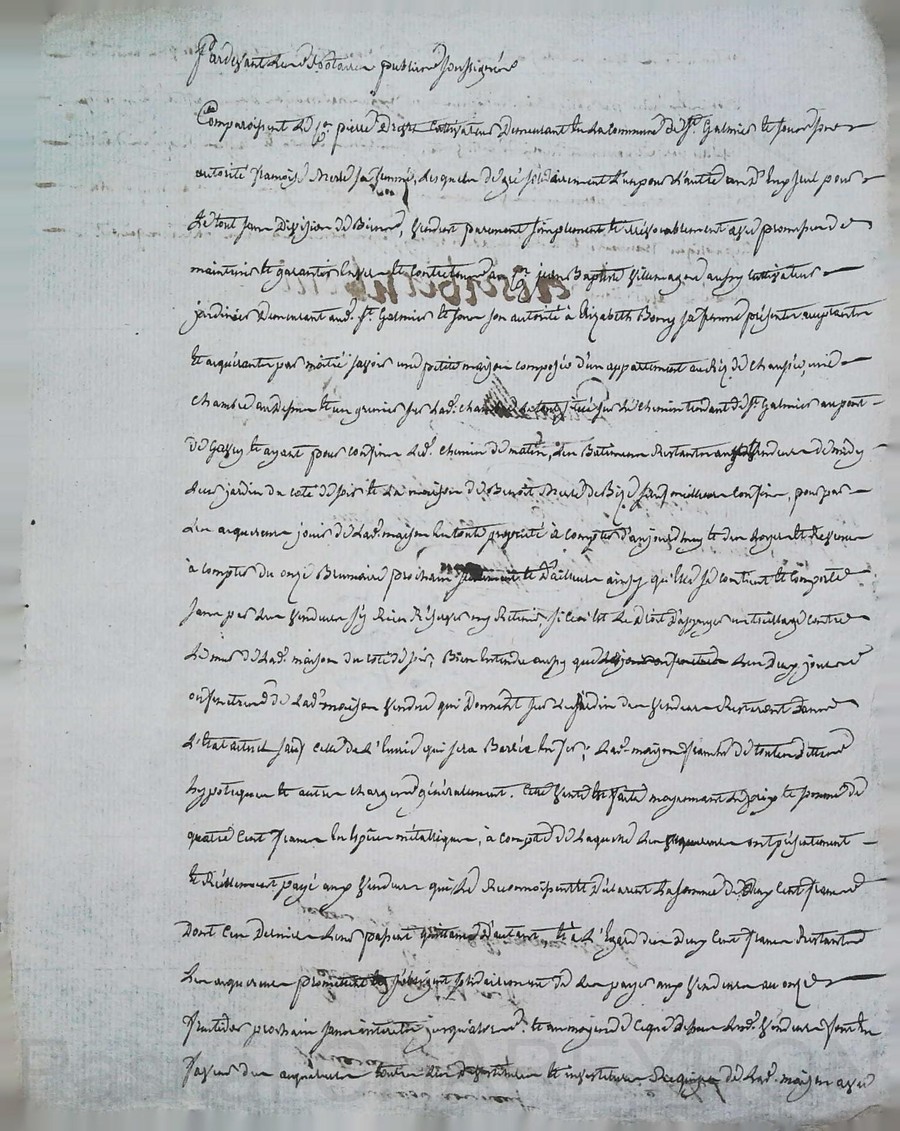 Pardevant Les Notaires publics soussignés
Comparoissent Le Sr. pierre cultivateur Demeurant En La Commune de St. Galmier Et sous son
autorité françoise Merle sa femme, Lesquels de gré solidairement L'un pour L'autre un D'Eux seul pour
Le tout sans Division de Biens, vendent purement simplement Et irrévocablement avec promesse de
maintenir Et garantir Envers Et Contre tous au Sr. jean Baptiste Villemagne aussy cultivateur
jardinier Demeurant aud. St. Galmier Et sous son autorité à Elizabeth sa femme présents acceptants
Et acquérants par moitié savoir une petite maison composée d'un appartement au Rez de chaussée, une
chambre au Dessus Et un grenier sur Lad. situé sur Le chemin tendant de St. Galmier au pont
de Et ayant pour confins Led. chemin de matin, Les Batiments Restants aux vendeurs de midy
Leur jardin du coté de soir Et La maison de Benoit Merle de Bize sauf meilleurs confins, pour par
Les acquereurs jouir de Lad. maison En toute propriété à compter d'aujourdhuy Et des Loyers Et Revenus
à compter du onze Brumaire prochain Et D'ailleurs ainsy qu'Elle se contient Et Comporte
sans par Les vendeurs s'y Rien Réserver ny Retenir, si ce n'Est Le Droit D'appuyer un treillage contre
Le mur de Lad. maison du coté de soir; Bien Entendu aussy que Les Deux jours
ou fenetres de Lad. maison vendue qui Donnent sur Le jardin des vendeurs Resteront Dans
L'Etat actuel sauf celle de L'Ennié qui sera Lad. maison franche de toutes dettes
hypoteques Et autres charges généralement. Cette vente Est faite moyennant Le prix Et somme de
quatre Cent francs En Espèces métallique, à compte de Laquelle Les acquereurs ont présentement
Et Réellement payé aux vendeurs qui Le Reconnoissent Et Déclarent La somme de Deux Cent francs
Dont Ces Derniers Leur passent quittance D'autant, Et à L'Egard des Deux Cent francs Restants
Les acquereurs s'obligent solidairement de Les payer aux vendeurs au onze
fructidor prochain sans interêts jusqu'alors; Et au moyen de ce que Dessus Lesd. vendeurs se sont En
faveur des acquéreurs Et investiteurs De Lad. maison avec